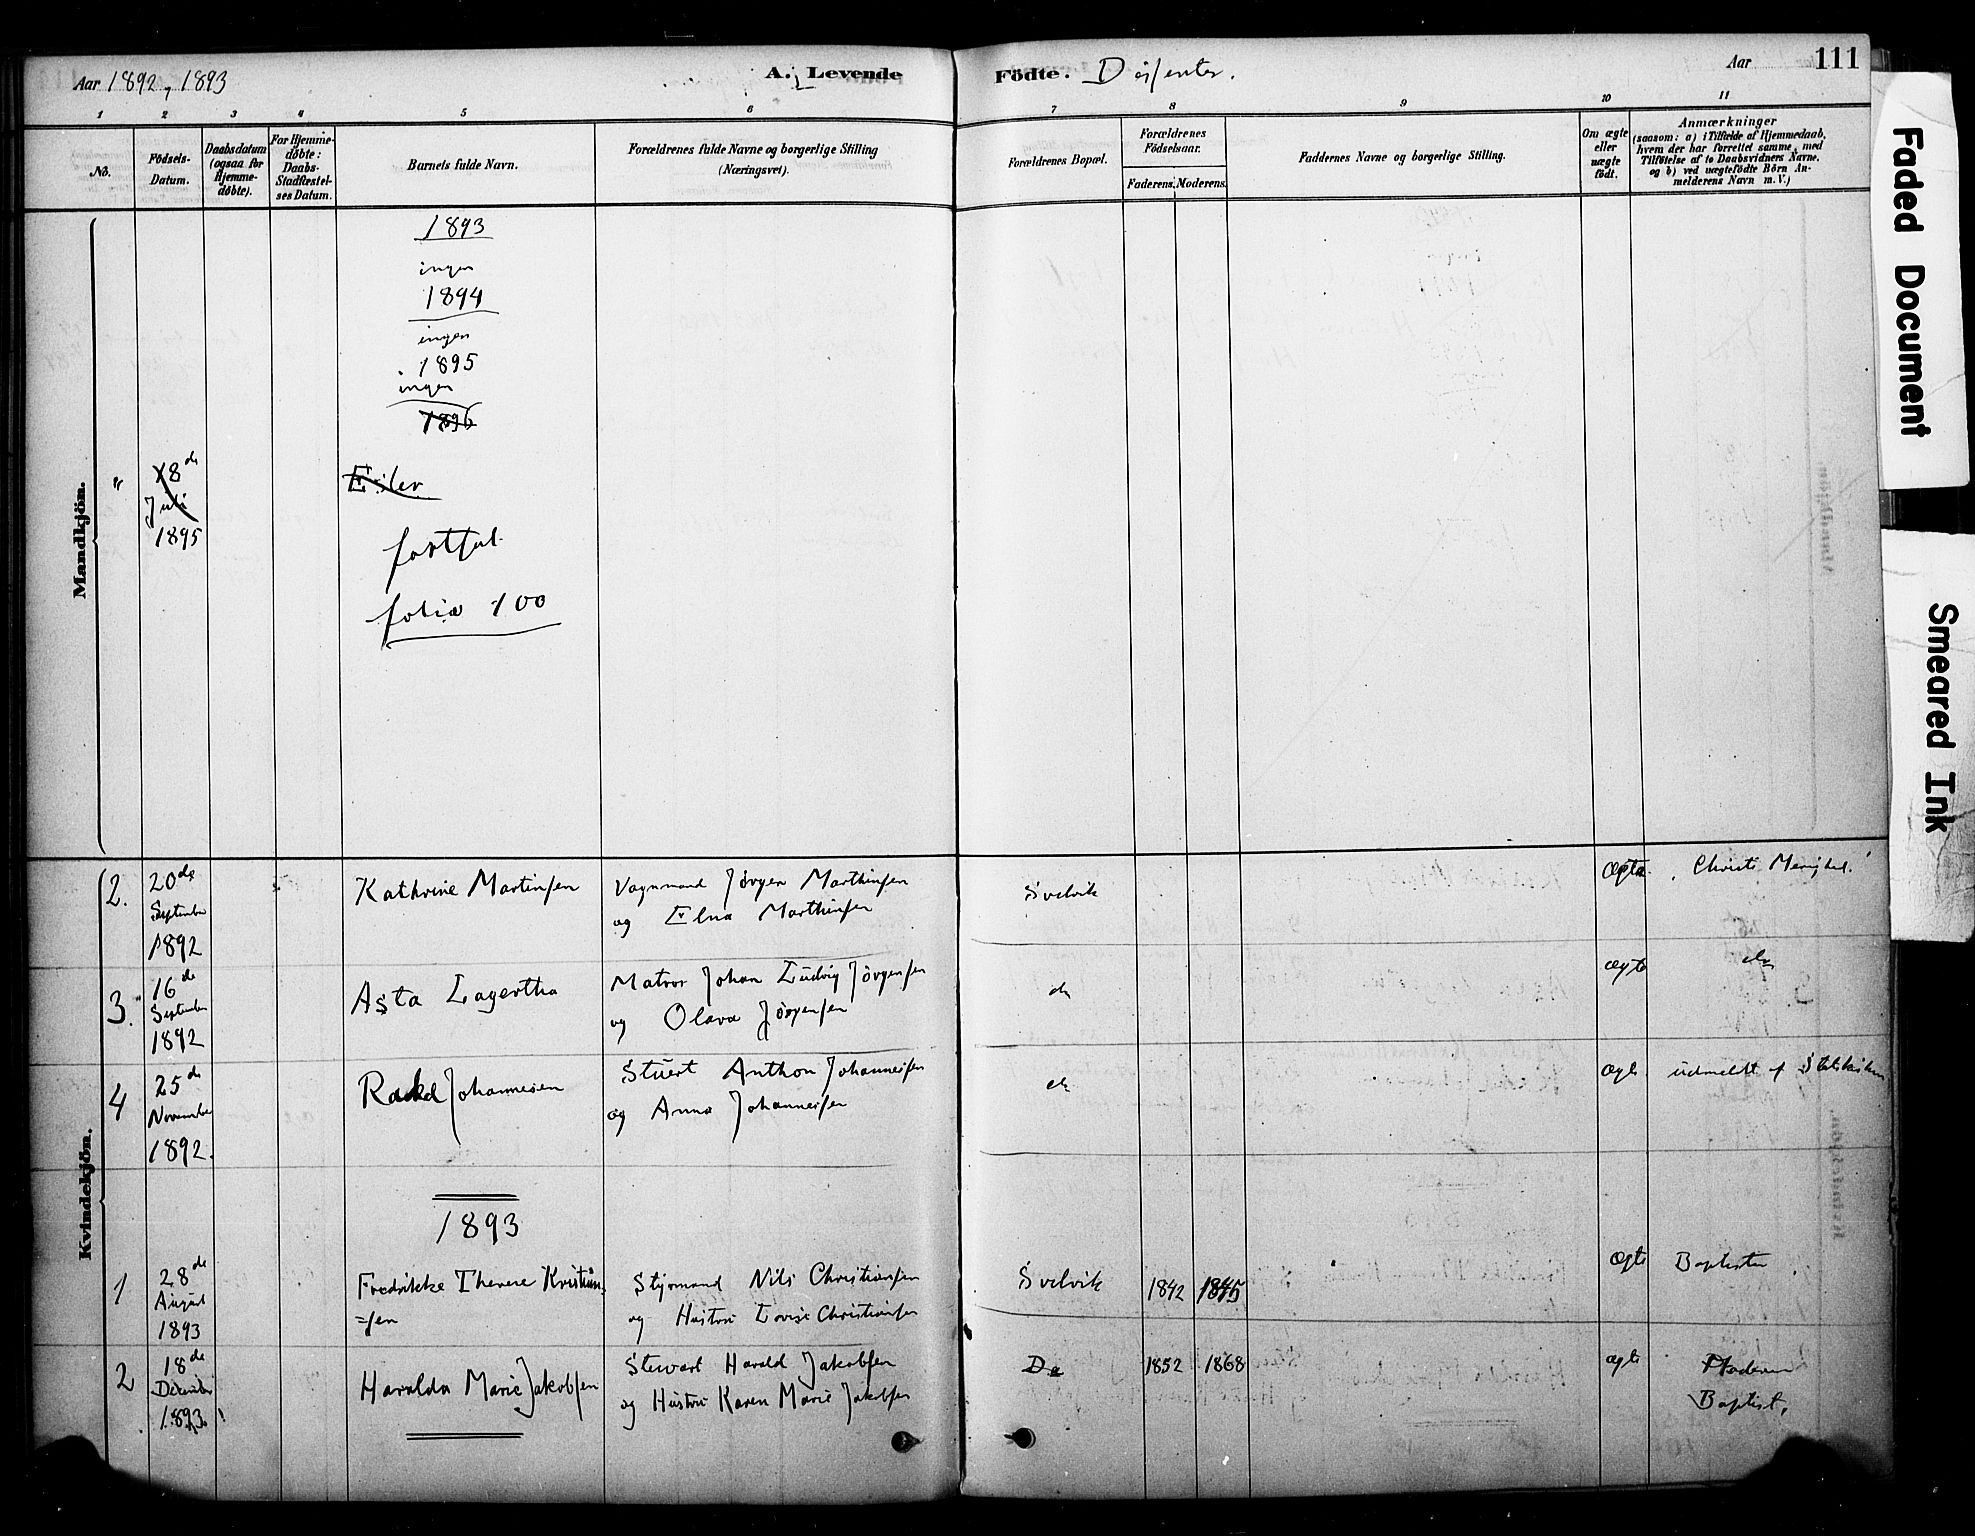 Aar 1892, 1893
A. Levende
Födte. Disenter.
Aar
111
1 2 3 4 5 6 7 8 9 10 11
No.
Födsels-
Datum.
Daabsdatum
(ogsaa for
Hjemme-
döbte).
For Hjemme-
döbte:
Daabs-
Stadfæstel-
ses Datum.
Barnets fulde Navn.
Forældrenes fulde Navne og borgerlige Stilling
(Næringsvei).
Forældrenes Bopæl.
Forældrenes
Födselsaar.
Faderens. Moderens.
Faddernes Navne og borgerlige Stilling.
Om ægte
eller
uægte
födt.
Anmærkninger
(saasom: a) i Tilfælde af Hjemmedaab,
hvem der har forrettet samme, med
Tilföielse af to Daabsvidners Navne,
og b) ved uægtefödte Börn An-
melderens Navn m. V.)
Mandkjön.
1893
ingen
1894
ingen
1895
ingen
1896
" 18de
Juli
1895
Eiler
fortsat
folio 100
Kvindekjön.
2. 20de
September
1892
Kathrine Martinsen
Vognmand Jørgen Marthinsen
og Elna Marthinsen
Svelvik
Ægte
Christi Menighed.
3. 16de
September
1892
Asta Lagertha
Matros Johan Ludvig Jørgensen
og Olava Jørgensen
do
Ægte
do
4 25de
November
1892.
Rakel Johannesen
Stuert Anthon Johannesen
og Anna Johannesen
do
Ægte
udmeldt af Statskirken
1893
1 28de
August
1893
Fredrikke Therese Kristian-
=sen
Styrmand Nils Christiansen
og Hustru Lovise Christiansen
Svelvik
1842 1845
Ægte
Baptister
2 18de
December
1893.
Haralda Marie Jakobsen
Stewart Harald Jakobsen
og Hustru Karen Marie Jakobsen
Do
1852 1868
ægte
Moderen
Baptist.
Faded Document
Smeared Ink